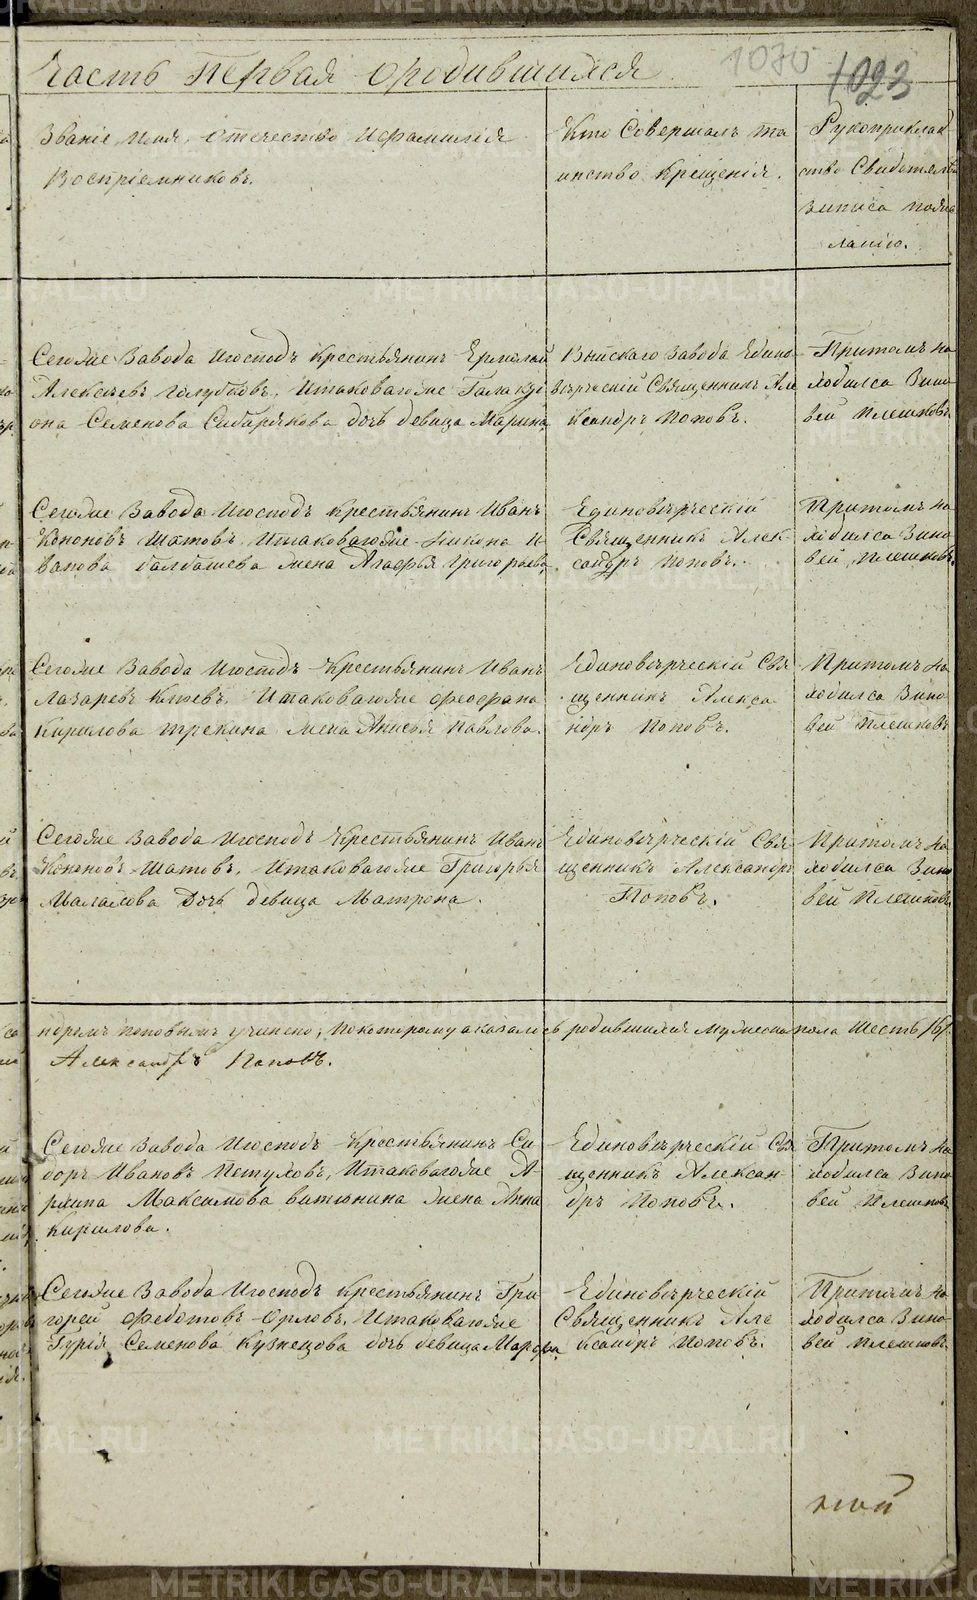 METRIKI.GASO-URAL.RU
Часть Первая о родившихся
1070
1023
Званіе, имя, отечество и фамилія
воспріемниковъ.
Кто совершалъ та
инство крещенія.
Рукоприклад
ство Свидетелей
записа по жела
ланію.
Сегоже завода и господъ крестьянинъ Ермолай
Алексѣевъ Голубковъ, и таковагоже Галакці
она Семенова дочь девица Марина
Выйскаго завода Едино
вѣрческій Священникъ Але
ксандръ Поповъ.
Притомъ на
ходился Зино
вей Плешковъ
Сегоже завода и господъ крестьянинъ Иванъ
Кононовъ Шатовъ, и таковагоже Никона И
ванова Балдашева жена Агафья Григорьева
Единовѣрческій
Священникъ Алек
сандръ Поповъ.
Притомъ на
ходился Зино
вей Плешковъ.
Сегоже завода и господъ крестьянинъ Иванъ
Лазаревъ и таковагоже Феофана
Кирилова Трекина жена Анисья Павлова.
Единовѣрческій Свя
щенникъ Алекса
ндръ Поповъ.
Притомъ на
ходился Зино
вей Плешковъ
Сегоже завода и господъ крестьянинъ Иванъ
Кононовъ Шатовъ, и таковагоже Григорья
Малахова дочь девица Матрона.
Единовѣрческій Свя
щенникъ Александръ
Поповъ.
Притомъ на
ходился Зино
вей Плешковъ
поповымъ учинено, по которому оказалось родившихся мужеска пола шесть /6/.
Александръ Поповъ.
Сегоже завода и господъ крестьянинъ Си
доръ Ивановъ Петуховъ, и таковагоже А-
рхипа Максимова Витюнина жена Анна
Кирилова.
Единовѣрческій Свя
щенникъ Алексан
дръ Поповъ.
Притомъ на
ходился Зино
вей Плешковъ
Сегоже завода и господъ крестьянинъ Гри
горей Федотовъ Орловъ, и таковагоже
Гурія Семенова Кузнецова дочь девица Марфа
Единовѣрческій
Священникъ Але
ксандръ Поповъ.
Притомъ на
ходился Зино-
вей Плешковъ.
METRIKI.GASO-URAL.RU